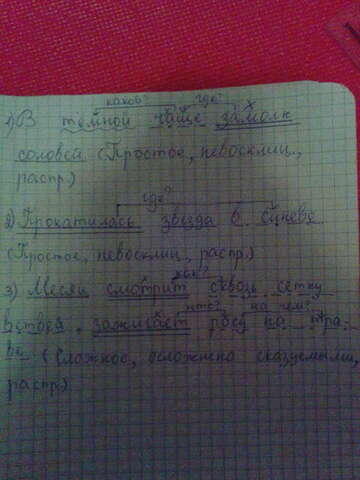 каков? где?
1) В темной чаще замолк
соловей (Простое, невосклиц.,
распр.)
где?
2) Прокатилась звезда в синеве
(Простое, невосклиц., распр.)
как?
3) Месяц смотрит сквозь сетку
что? на чем?
ветвей, зажигает росу на тра-
ве (Сложное, осложнено сказуемыми,
распр)